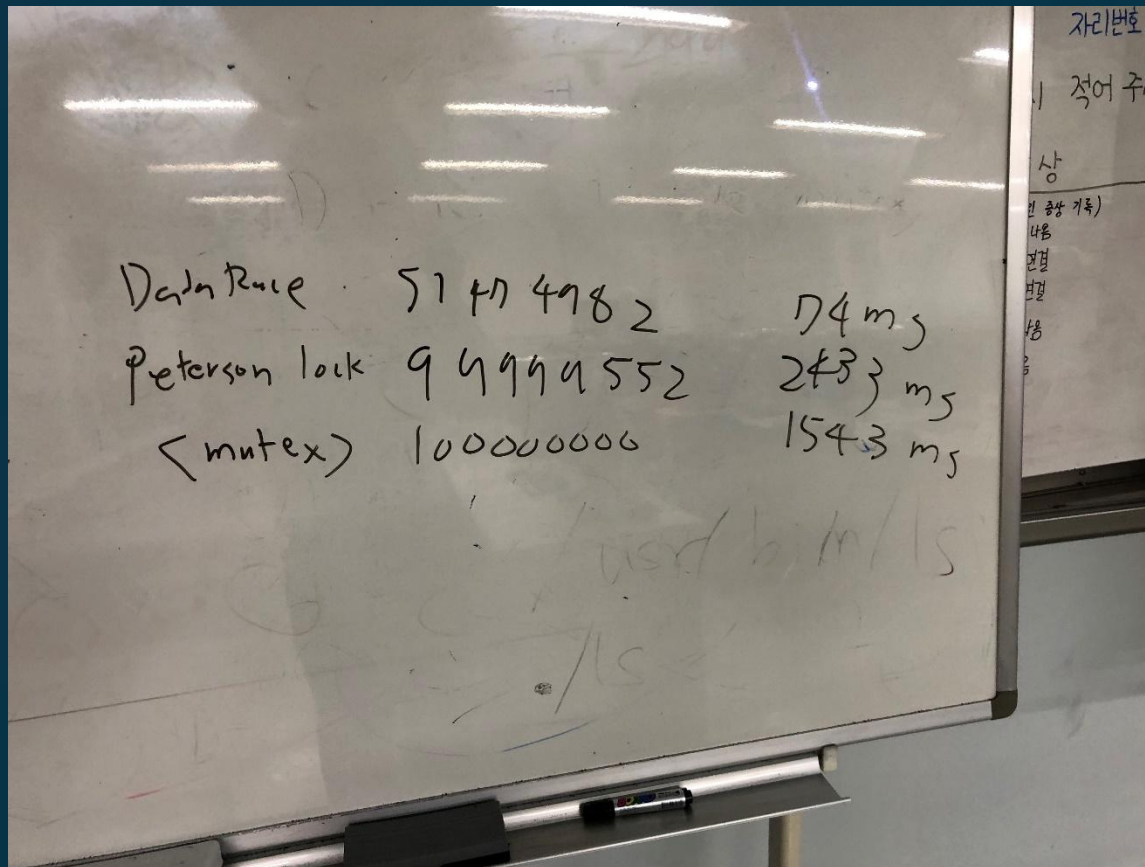 Data Race 57474982 74ms
Peterson lock 99999552 2433 ms
<mutex> 100000000 1543 ms
자리번호
적어 주
상
증상 기록)
나옴
연결
연결